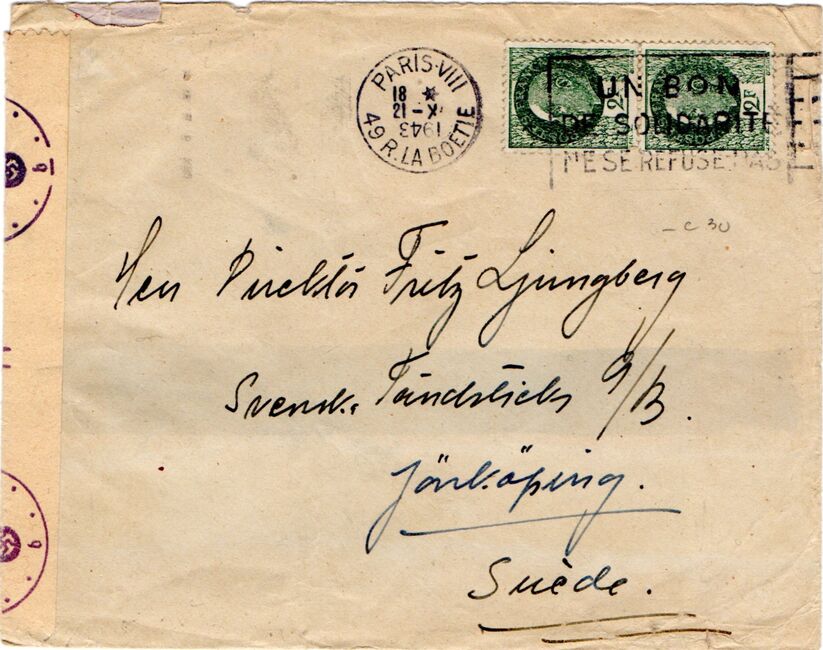 PARIS·VIII
18 *
21-X
1943
49 R. LA BOETIE
2F
2F
UN BON
DE SOLIDARITE
NE SE REFUSE PAS
- c 30
Herr Direktör Fritz Ljungberg
Svensk. Tändsticks A/B.
Jönköping.
Suède.
b
b